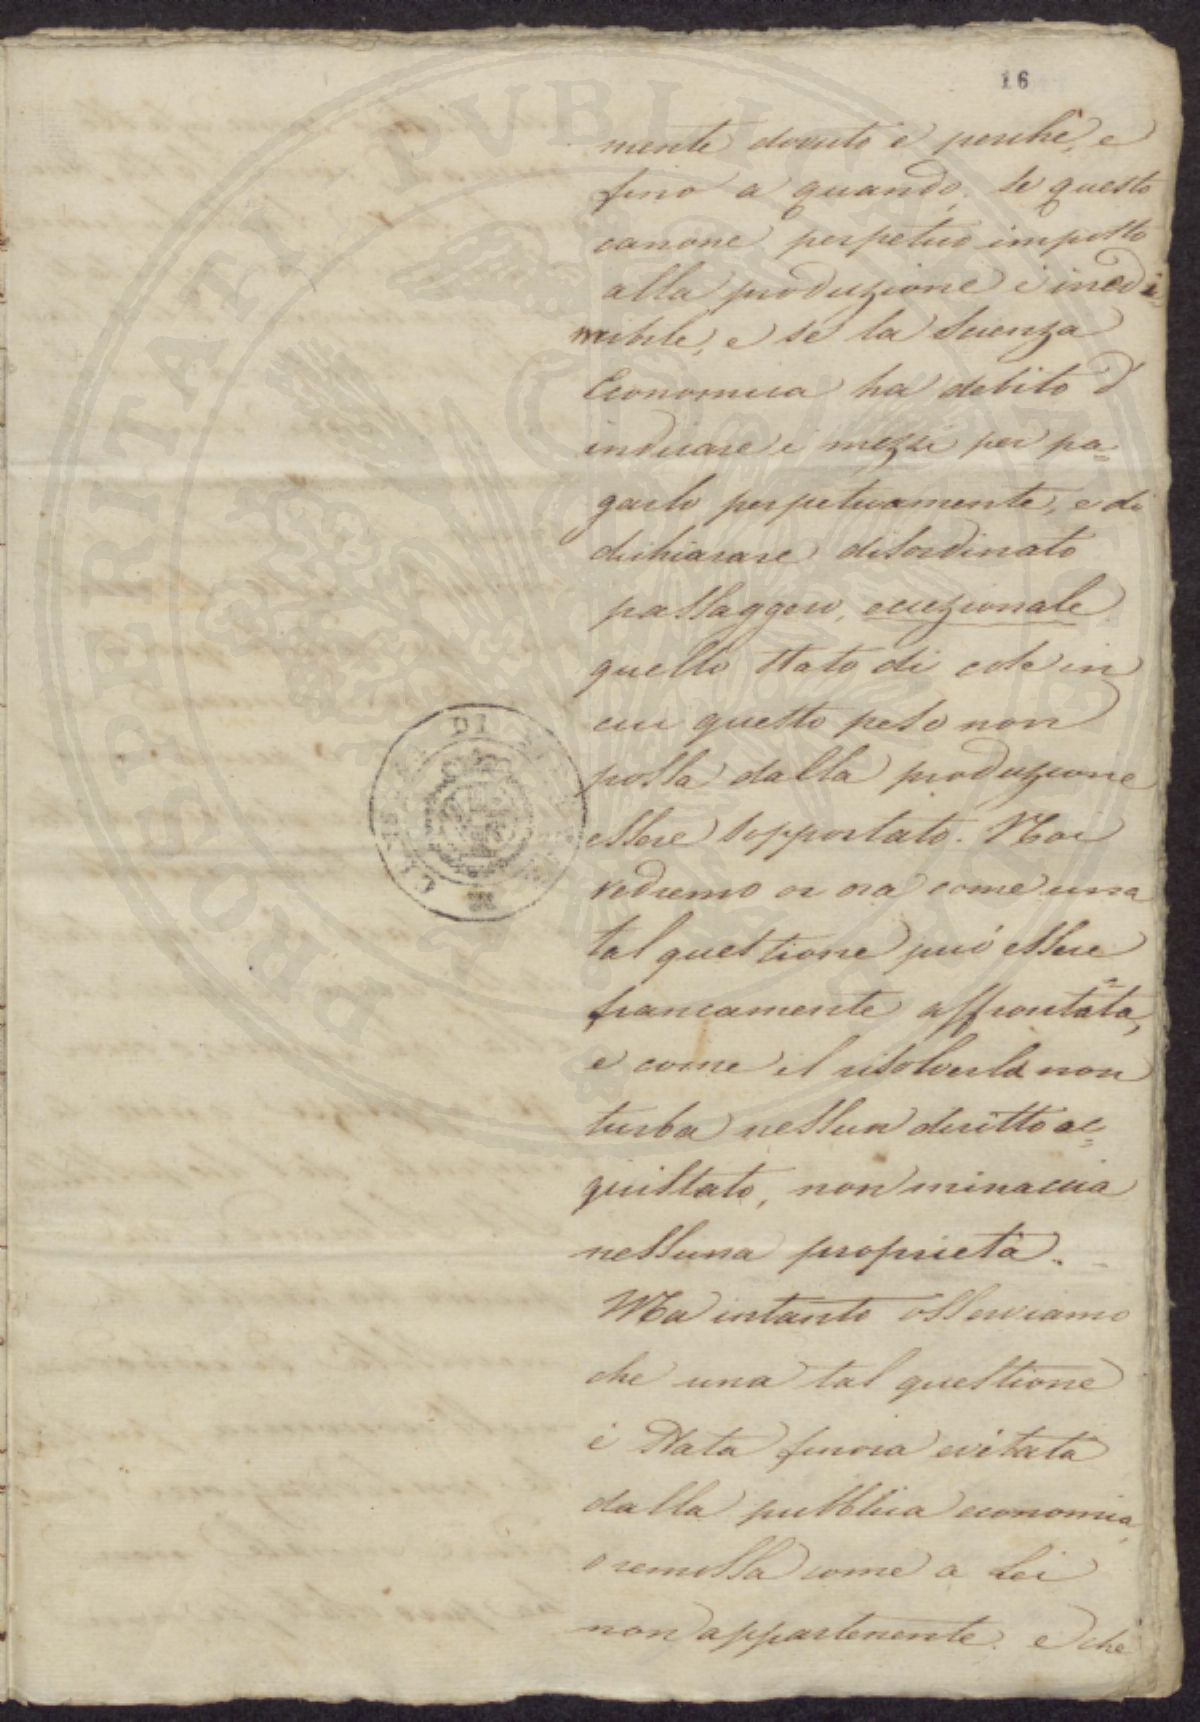 16
mente dovuto e perchè, e
fino a quando, se questo
canone perpetuo imposto
alla produzione è inredi=
mibile, e se la Scienza
Economica ha debito d'
indicare i mezzi per pa=
garlo perpetuamente, e di
dichiarare disordinato
passaggero, eccezionale
quello stato di cose in
cui questo peso non
possa dalla produzione
essere sopportato. Noi
vedremo or ora come una
tal questione può essere
francamente affrontata,
e come il risolverla non
turba nessun diritto ac=
quistato, non minaccia
nessuna proprietà.
Ma intanto osserviamo
che una tal questione
è stata finora evitata
dalla pubblica economia,
o remossa come a Lei
non appartenente. e che
PROSPERITATI PUBLICAE
DI